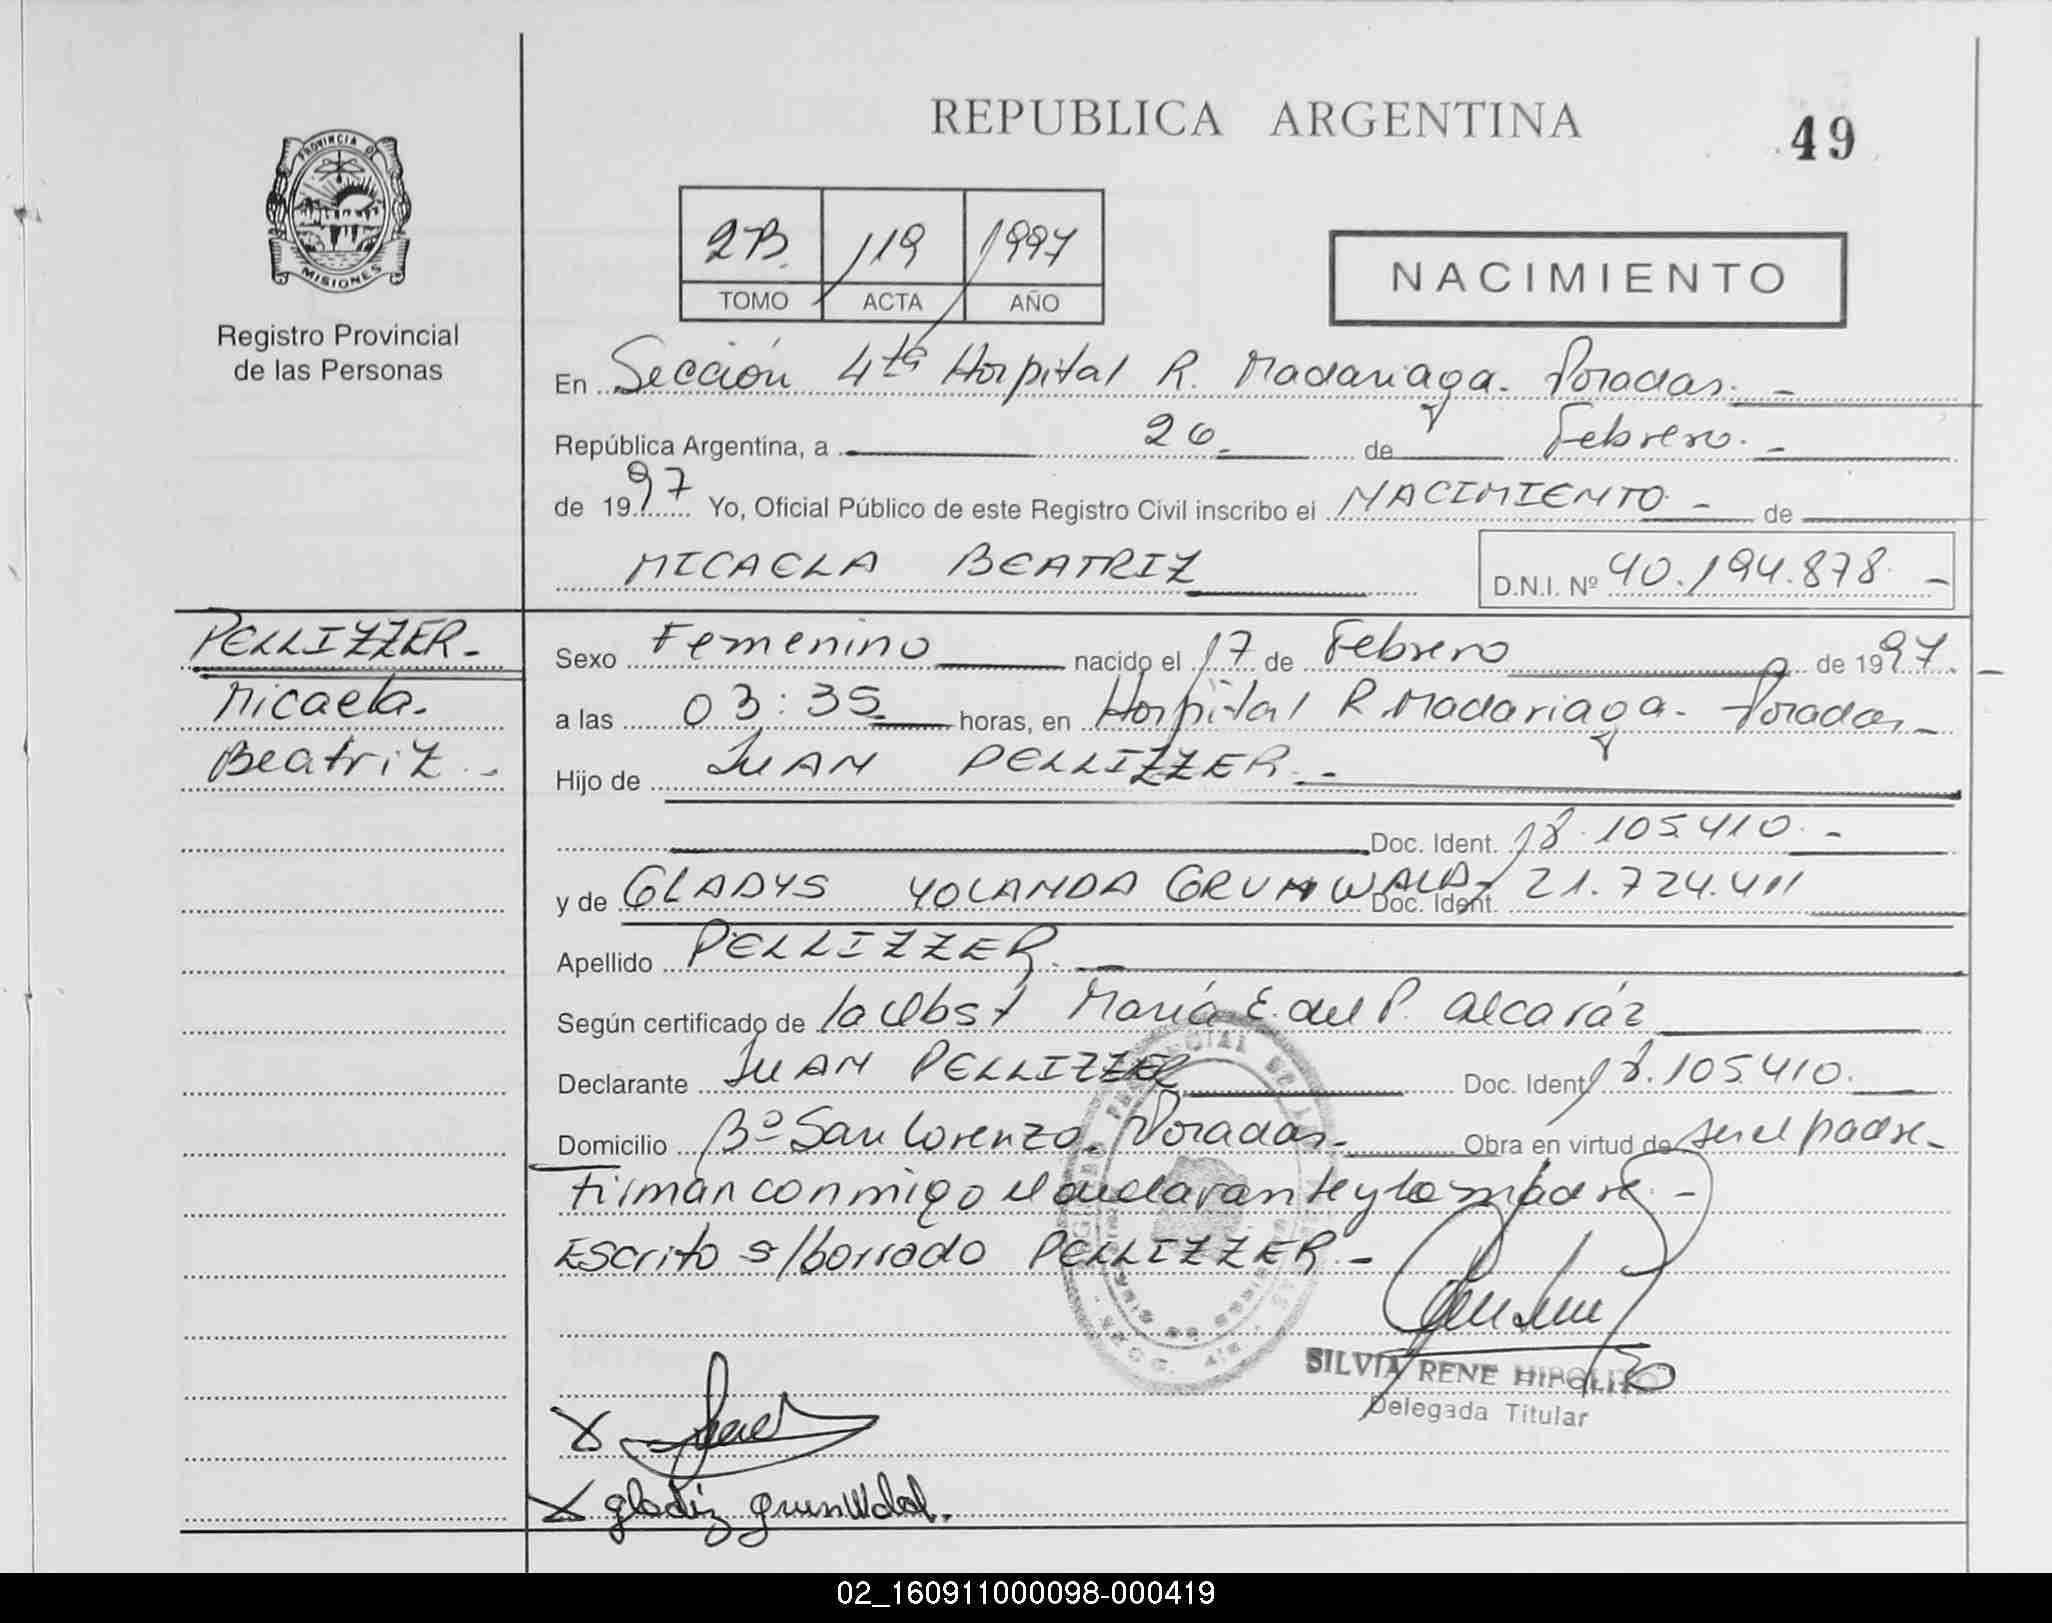 REPUBLICA ARGENTINA
49
PROVINCIA DE
MISIONES
Registro Provincial
de las Personas
2B. 119 1997
TOMO ACTA AÑO
NACIMIENTO
En Sección 4ta Hospital R. Madariaga. Posadas. -
República Argentina, a 26 de Febrero. -
de 1997 Yo, Oficial Público de este Registro Civil inscribo el NACIMIENTO - de
MICAELA BEATRIZ
D.N.I. Nº 40.194.878 -
PELLIZZER-
Micaela.
Beatriz. -
Sexo Femenino nacido el 17 de Febrero de 1997. -
a las 03:35 horas, en Hospital R. Madariaga. Posadas -
Hijo de JUAN PELLIZZER. -
Doc. Ident. 18.105.410. -
y de GLADYS YOLANDA GRUNWALD- Doc. Ident. 21.724.411
Apellido PELLIZZER. -
Según certificado de la Obst María E. del P. Alcaráz
Declarante JUAN PELLIZZER Doc. Ident. 18.105.410.
Domicilio Bº San Lorenzo, Posadas. Obra en virtud de ser el padre. -
Firman conmigo el declarante y la madre. -
Escrito s/borrado PELLIZZER. -
SILVIA RENE HIPOLITO
Delegada Titular
X
X gladiz grunWdal.
02_160911000098-000419